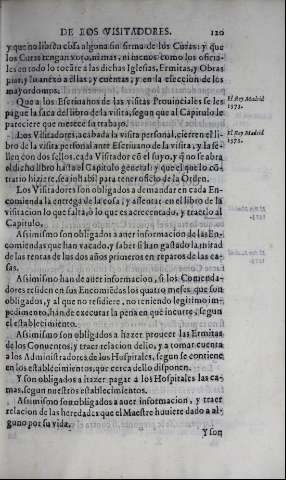 DE LOS VISITADORES. 120
y que no libren cosa alguna sin firma de los Curas: y que
los Curas tengan voto, mimas, ni menos como los oficia-
les en todo lo tocãte a las dichas Iglesias, Ermitas, y Obras
pias, y lo anexo a ellas: y cuentas, y en la eleccion de los
mayordomos.
Que a los Escriuanos de las visitas Prouinciales se les
pague la saca del libro de la visita, segun que al Capitulo le
pareciere que merece su trabajo.
El Rey Madrid
1573.
Los Visitadores, acabada la visita personal, cierren el li-
bro de la visita personal ante Escriuano de la visita, y la se-
llen con dos sellos, cada Visitador cõ el suyo, y q̃ no se abra
el dicho libro hasta el Capitulo general: y que el que lo cõ-
trario hiziere, sea inhabil para tener oficio de la Orden.
El Rey Madrid
1573.
Los Visitadores son obligados a demandar en cada En-
comienda la entrega de la casa, y assentar en el libro de la
visitacion lo que falta, ò lo que es acrecentado, y traerlo al
Capitulo.
Assimismo son obligados a auer informacion de las En-
comiendas que han vacado, y saber si han gastado la mitad
de las rentas de los dos años primeros en reparos de las ca-
sas.
Assimismo han de auer informacion, si los Comenda-
dores residen en sus Encomiẽdas los quatro meses que son
obligados, y al que no residiere, no teniendo legitimo im-
pedimento, hãn de executar la pena en que incurre, segun
el establecimiento.
Assimismo son obligados a hazer proueer las Ermitas
de los Conuentos, y traer relacion dello, y a tomar cuenta
a los Administradores de los Hospitales, segun se contiene
en los establecimientos, que cerca dello disponen.
Y son obligados a hazer pagar a los Hospitales las ca-
mas, segun nuestros establecimientos.
Assimismo son obligados a auer informacion, y traer
relacion de las heredades que el Maestre huuiere dado a al-
guno por su vida.
Y son